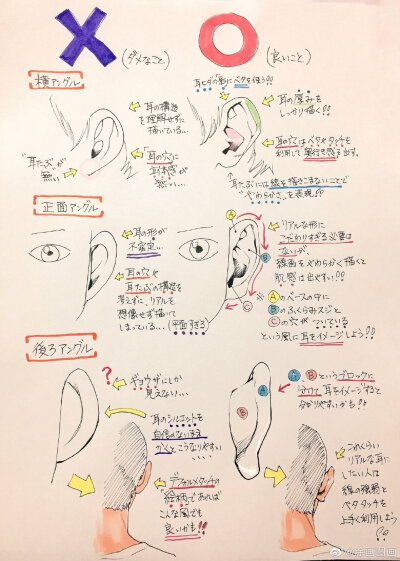 (ダメなこと)
(良いこと)
横アングル
耳の構造
を理解せずに
描いている…
"耳たぶ"が
無い
「耳の穴」に
立体感が
無い…
耳ヒダの影にベタを使う!!
耳の厚みを
しっかり描く!!
耳の穴はベタやタッチを
利用して奥行き感を出す。
耳たぶには線を描きこまないことで
"やわらかさ"を表現!!
正面アングル
耳の形が
不安定…
耳の穴や
耳たぶの構造を
考えずに、リアルを
想像せず描いて
しまっている…(平面すぎる)
A
B
C
リアルな形に
こだわりすぎる必要は
ないが、
線画をやわらかく描くと
肌感は出やすい!!
Aのベースの中に
Bのふくらみスジと
Cの穴がついている
という風に耳をイメージしよう!!
後ろアングル
?
ギョウザにしか
見えない…
耳のシルエットを
自信のないまま
かくとこうなりやすい
デフォルメタッチの
絵柄であれば
こんな風でも
良いかも!!
A
B
A、Bというブロックに
分けて耳をイメージすると
分かりやすいかも!
これくらい
リアルな耳に
したい人は
線の強弱と
ベタタッチを
上手く利用しよう
!!